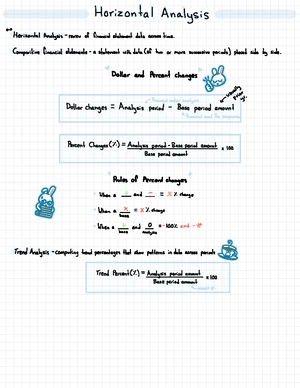 Horizontal Analysis
Horizontal Analysis - review of financial statement data across time.
Comparitive financial statements - a statement with data (of two or more successive periods) placed side by side.
Dollar and Percent changes
Dollar changes = Analysis period - Base period amount
Percent Changes (%) = Analysis period - Base period amount x 100
Base period amount
Rules of Percent changes
When a and - = x % change
When a x = x % change
base
When a and 0 = -100%
base analysis
Trend Analysis - computing trend percentages that show patterns in data across periods
Trend Percent (%) = Analysis period amount x 100
Base period amount